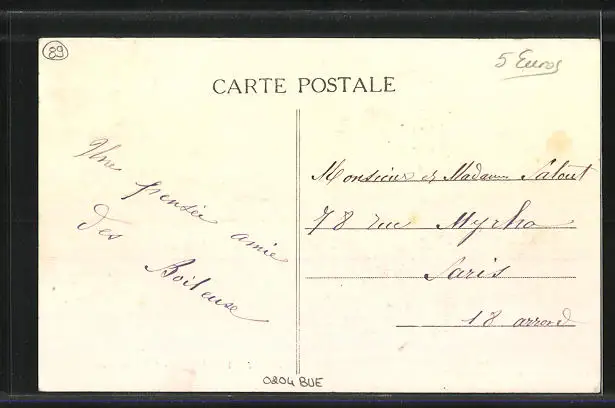 89
5 Euros
CARTE POSTALE
Une pensée amie
des Boiteuse
Monsieur et Madame Salout
78 rue Myrha
Paris
18 arrond
0204 BUE